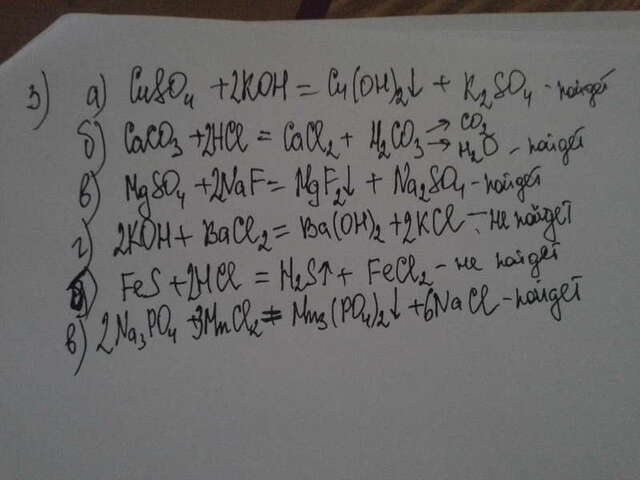 3) а) CuSO4 + 2KOH = Cu(OH)2↓ + K2SO4 - пойдёт
б) CaCO3 + 2HCl = CaCl2 + H2CO3 → CO2 → H2O - пойдёт
в) MgSO4 + 2NaF = MgF2↓ + Na2SO4 - пойдёт
г) 2KOH + BaCl2 = Ba(OH)2 + 2KCl - не пойдёт
д) FeS + 2HCl = H2S↑ + FeCl2 - не пойдёт
в) 2Na3PO4 + 3MnCl2 = Mn3(PO4)2↓ + 6NaCl - пойдёт